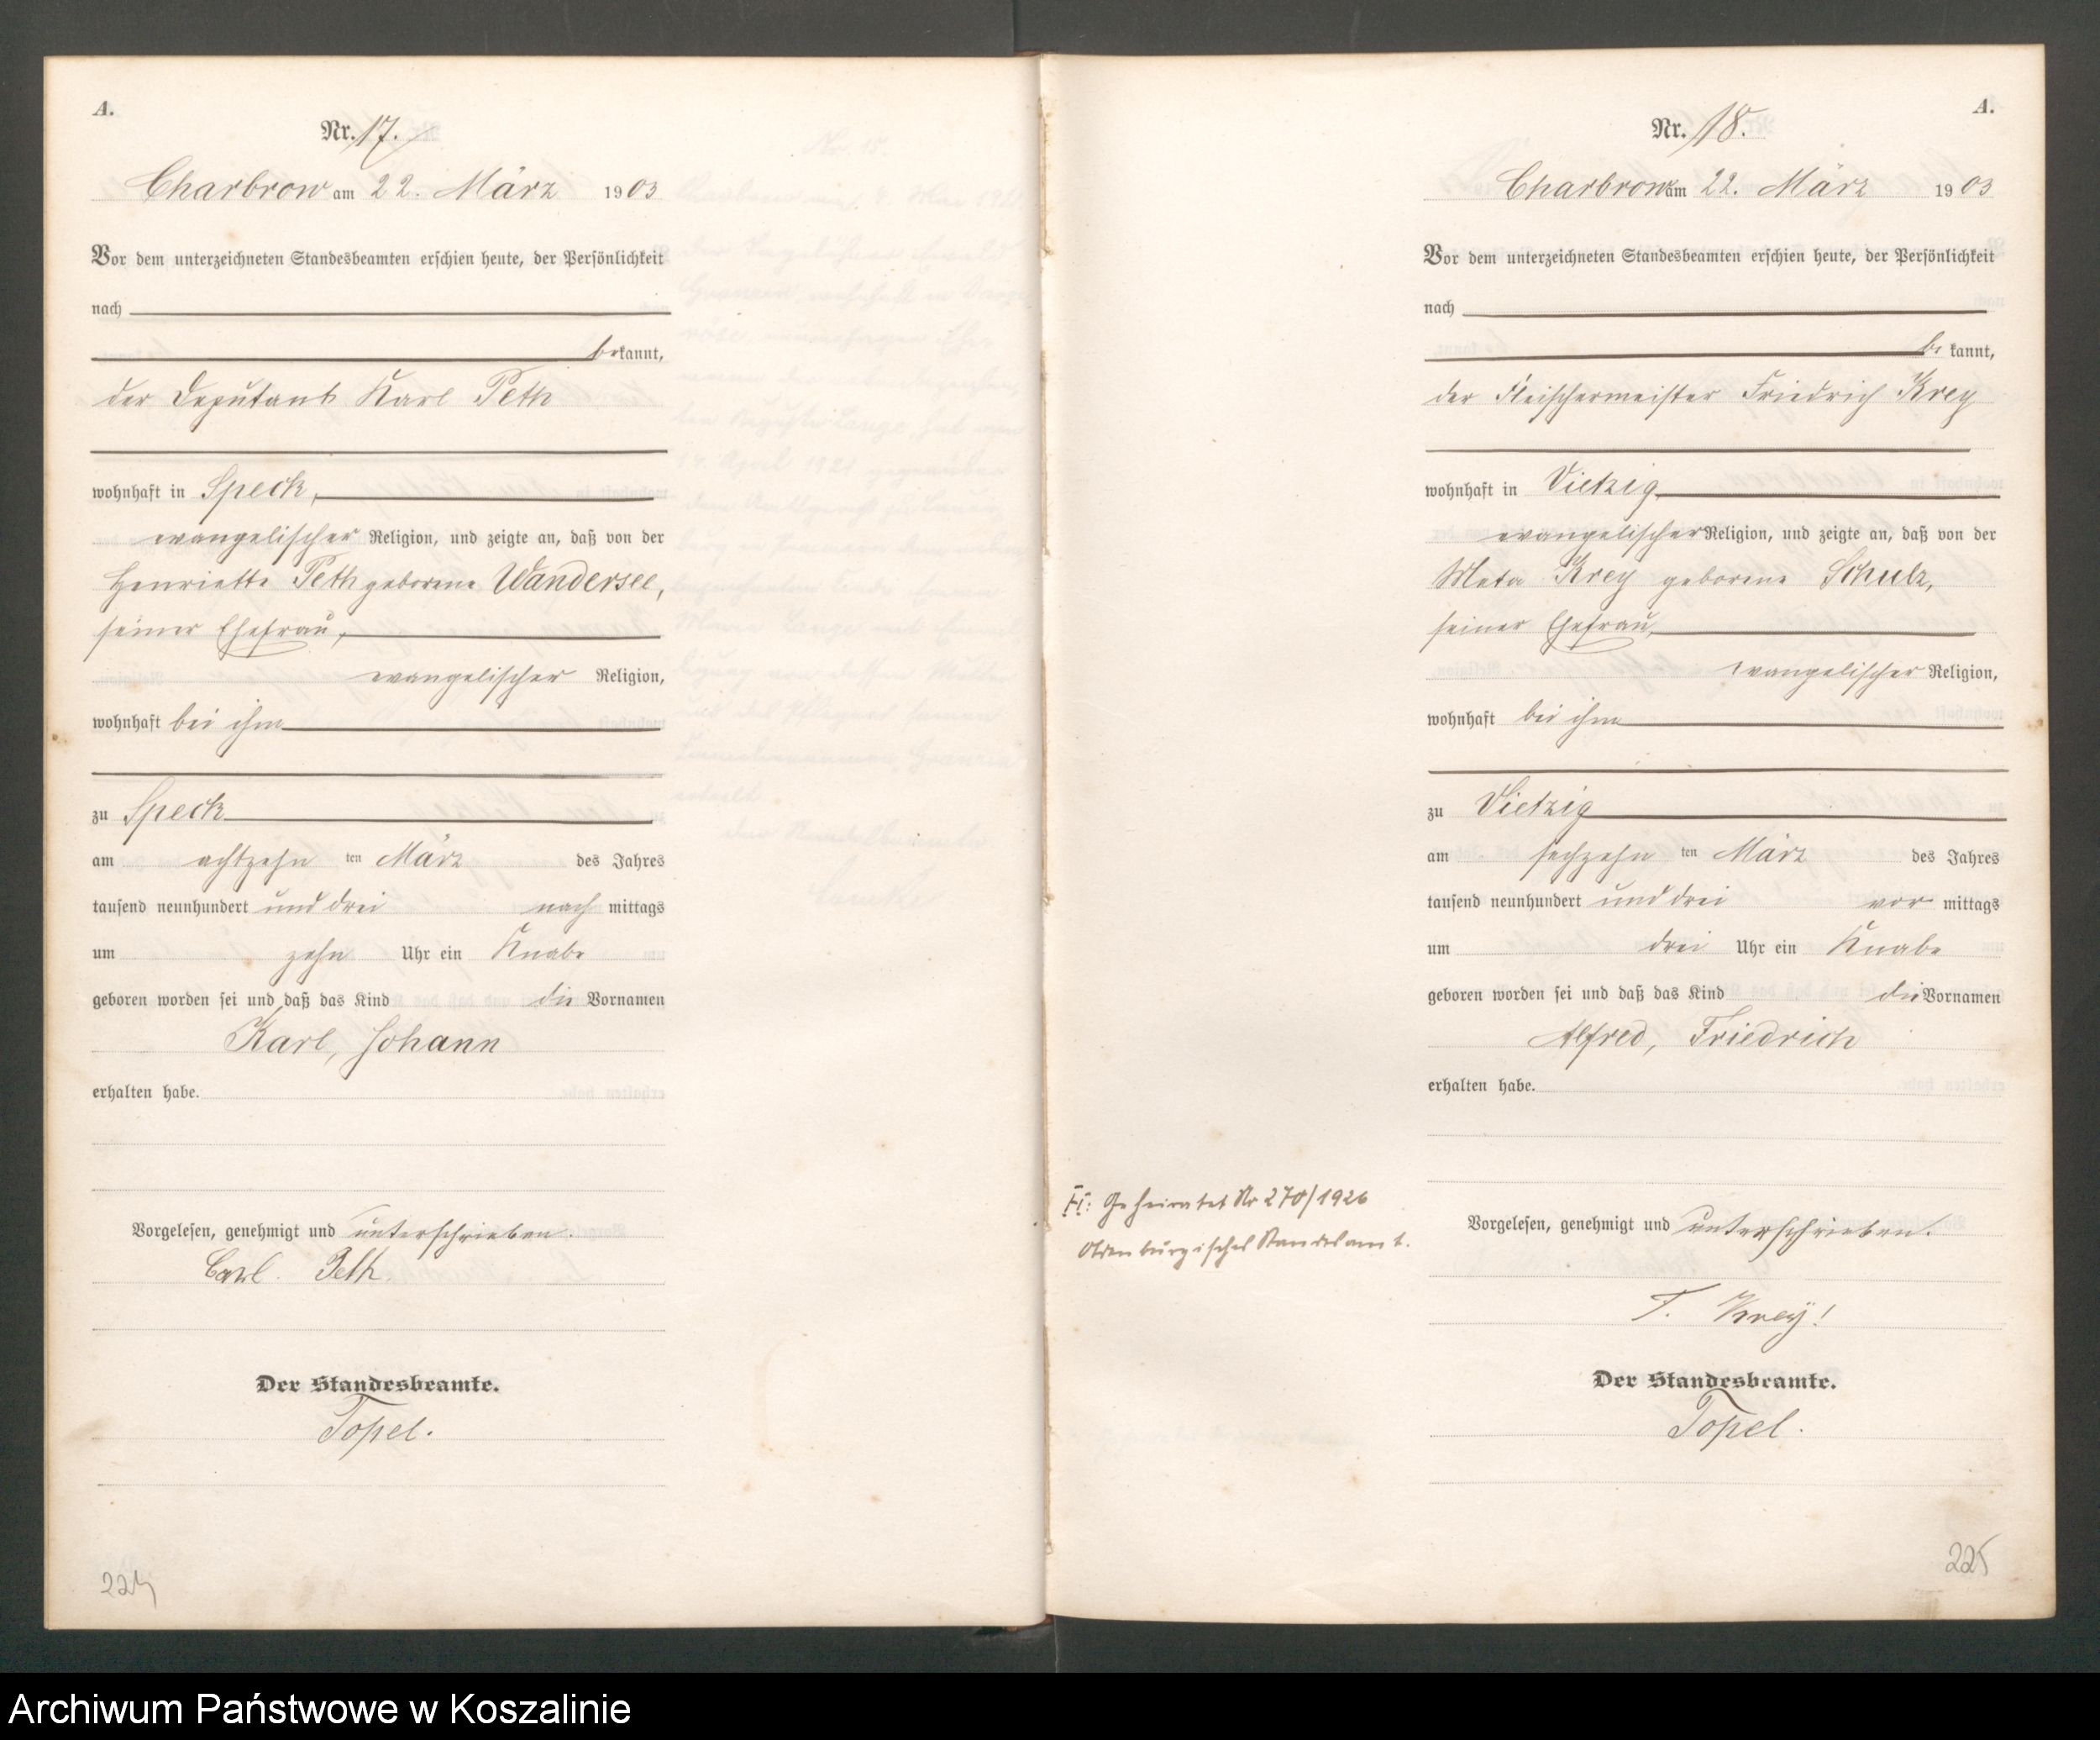 A.
Nr. 17.
Charbrow am 22. März 1903
Vor dem unterzeichneten Standesbeamten erschien heute, der Persönlichkeit
nach
bekannt,
der Deputant Karl Peth
wohnhaft in Speck,
evangelischer Religion, und zeigte an, daß von der
Henriette Peth geborene Wandersee,
seiner Ehefrau,
evangelischer Religion,
wohnhaft bei ihm
zu Speck
am achtzehn ten März des Jahres
tausend neunhundert und drei nach mittags
um zehn Uhr ein Knabe
geboren worden sei und daß das Kind die Vornamen
Karl, Johann
erhalten habe.
Vorgelesen, genehmigt und unterschrieben.
Carl Peth
Der Standesbeamte.
Topel.
224
A.
Nr. 18.
Charbrow am 22. März 1903
Vor dem unterzeichneten Standesbeamten erschien heute, der Persönlichkeit
nach
bekannt,
der Fleischermeister Friedrich Krey
wohnhaft in Vietzig
evangelischer Religion, und zeigte an, daß von der
Meta Krey geborene Schulz,
seiner Ehefrau,
evangelischer Religion,
wohnhaft bei ihm
zu Vietzig
am sechzehn ten März des Jahres
tausend neunhundert und drei vor mittags
um drei Uhr ein Knabe
geboren worden sei und daß das Kind die Vornamen
Alfred, Friedrich
erhalten habe.
Geheiratet Nr 270/1926
Oldenburgisches Standesamt.
Vorgelesen, genehmigt und unterschrieben.
F. Krey!
Der Standesbeamte.
Topel.
225
Archiwum Państwowe w Koszalinie